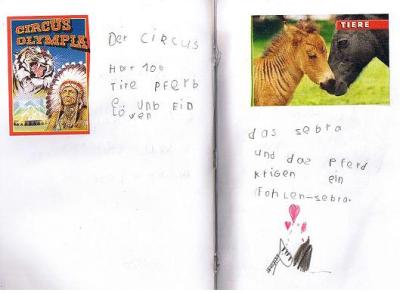 CIRCUS
OLYMPIA
Der CIRCUS
Hat 100
Tire PFerb
e unb EiN
Löwen
TIERE
das sebra
und das Pferd
krigen ein
Fohlen-sebra.